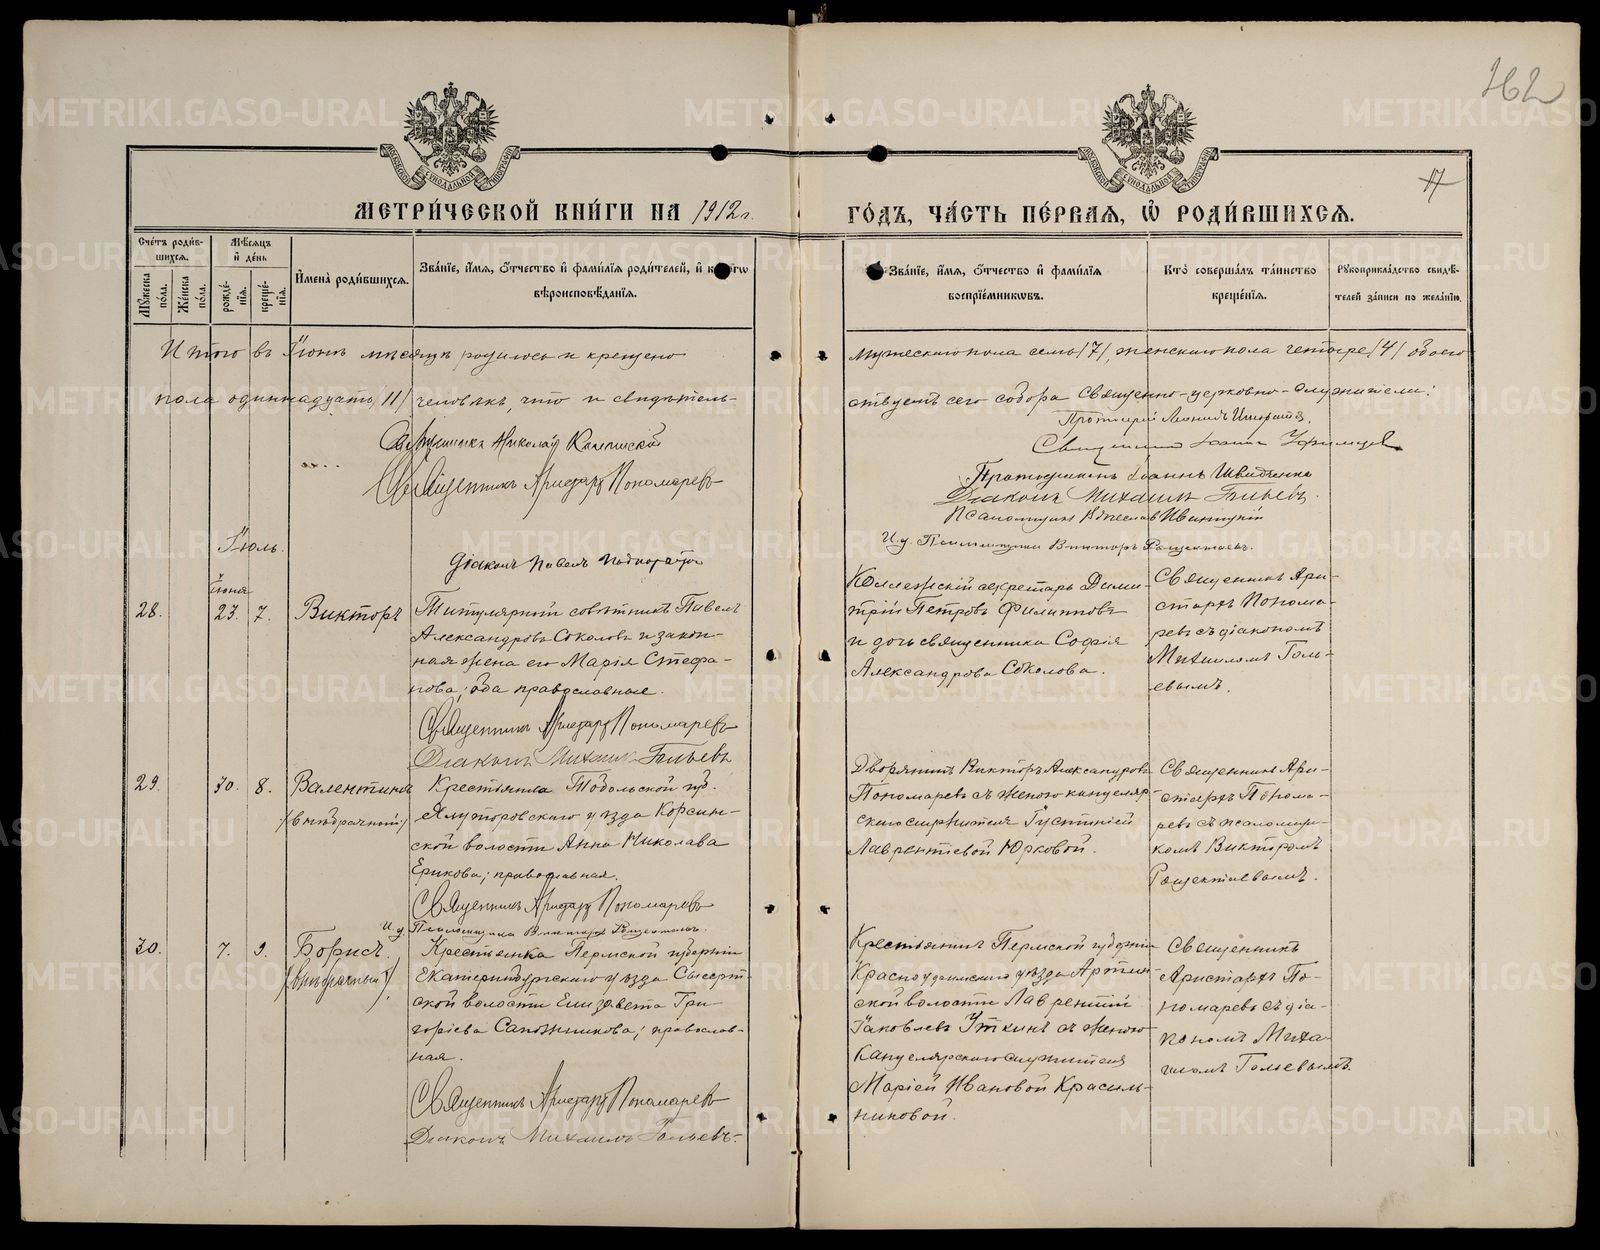 162
17
МЕТРИ́ЧЕСКОЙ КНИ́ГИ НА 1912 г.
ГО́ДЪ, ЧА́СТЬ ПЕ́РВАЯ, Ѡ҆ РОДИ́ВШИХСЯ.
Сче́тъ роди́в-
шихся.
Мꙋ́жеска по́ла.
Же́нска по́ла.
Мѣ́сяцъ
и҆ де́нь
рожде́-
нїя.
креще́-
нїя.
И҆мена̀ роди́вшихся.
Зва́нїе, и҆́мя, ѻ҆́тчество и҆ фами́лїя роди́телей, и҆
вѣроисповѣ́данїя.
Зва́нїе, и҆́мя, ѻ҆́тчество и҆ фами́лїя
воспрїе́мниковъ.
Кто̀ соверша́лъ та́инство
креще́нїя.
Рꙋкоприкла́дство свидѣ́-
телей за́писи по жела́нїю.
Итого въ Іюнѣ мѣсяцѣ родилось и крещено
мужескаго пола семь /7/, женскаго пола четыре /4/ обоего
пола одиннадцать /11/ человѣкъ, что и свидѣтель-
ствуетъ сего собора Священно-церковно-служители:
Протоіерей
Священникъ Іоаннъ
Николай
Священникъ Аристархъ Пономаревъ
Протодіаконъ Іоаннъ
Діаконъ Михаилъ Гольевъ.
Псаломщикъ
И. д. Псаломщика Викторъ Рощектаевъ.
Діаконъ Павелъ
Іюль.
Іюня
28. 23. 7. Викторъ
Титулярный совѣтникъ Павелъ
Александровъ Соколовъ и закон-
ная жена его Марія Стефа-
нова; оба православные.
Священникъ Аристархъ Пономаревъ
Діаконъ Михаилъ Гольевъ
Коллежскій секретарь Дими-
трій Петровъ Филипповъ
и дочь священника Софія
Александрова Соколова.
Священникъ Ари-
стархъ Понома-
ревъ съ діакономъ
Михаиломъ Голь-
евымъ.
29. 30. 8. Валентинъ
/внѣбрачный/
Крестьянка Тобольской губ.
Ялуторовскаго уѣзда Корсин-
ской волости Анна Николаева
Ерикова; православная.
Священникъ Аристархъ Пономаревъ
И. д. Псаломщика Викторъ Рощектаевъ.
Дворянинъ Викторъ Александровъ
Пономаревъ съ женою канцеляр-
скаго служителя Іустиніей
Лаврентіевой Юрковой.
Священникъ Ари-
стархъ Понома-
ревъ съ псаломщи-
комъ Викторомъ
Рощектаевымъ.
30. 7. 9. Борисъ.
(внѣбрачный).
Крестьянка Пермской губерніи
Екатеринбургскаго уѣзда Сысерт-
ской волости Елизавета Гри-
горіева Сапожникова; православ-
ная.
Священникъ Аристархъ Пономаревъ
Діаконъ Михаилъ Гольевъ.
Крестьянинъ Пермской губерніи
Красноуфимскаго уѣзда Артин-
ской волости Лаврентій
Іаковлевъ Уткинъ съ женою
Канцелярскаго служителя
Маріей Ивановой Красиль-
никовой.
Священникъ
Аристархъ По-
номаревъ съ діа-
кономъ Миха-
иломъ Гольевымъ.
METRIKI.GASO-URAL.RU